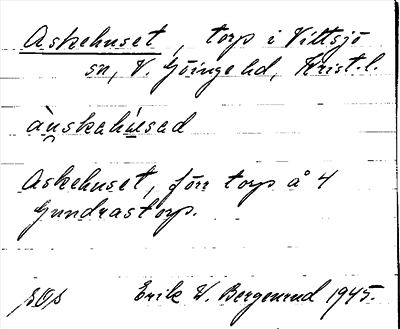 Askehuset, torp i Vittsjö
sn, V. Göinge hd, Krist. l.
Askehuset, förr torp å 4
Gundrastorp.
Erik W. Bergenrud 1945.